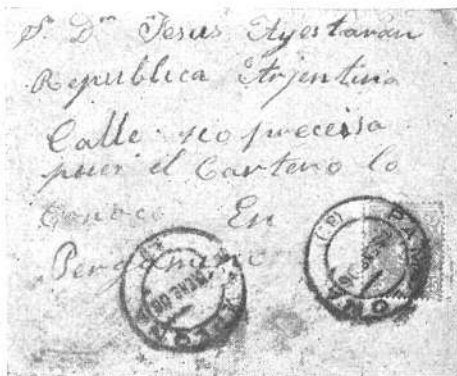 S. Dn Jesus Ayestarán
Republica Arjentina
Calle no precisa
pues el Cartero lo
Conoce En
Pergamino